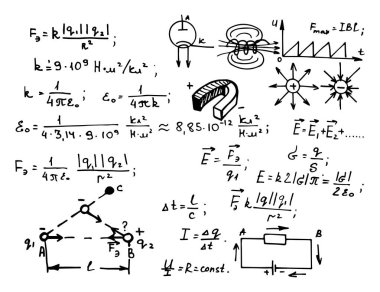 Fэ = k |q₁||q₂| / r² ;
k = 9·10⁹ Н·м²/кл² ;
k = 1 / 4πε₀ ; ε₀ = 1 / 4πk ;
ε₀ = 1 / 4·3,14·9·10⁹ кл² / Н·м² ≈ 8,85·10⁻¹² кл² / Н·м² ;
Fэ = 1 / 4πε₀ |q₁||q₂| / r² ;
C
- ?
- +
q₁ A F⃗э B q₂
l
A
K
U
0 t
Fmax = IBl ;
+ -
+
-
E⃗ = E⃗₁ + E⃗₂ + ......
E⃗ = F⃗э / q₁ ; σ = q / S ;
E = k2|σ|π = |σ| / 2ε₀ ;
Δt = l / c ; F⃗э k |q||q₁| / r² ;
I = Δq / Δt
U / I = R = const.
A B
+ -